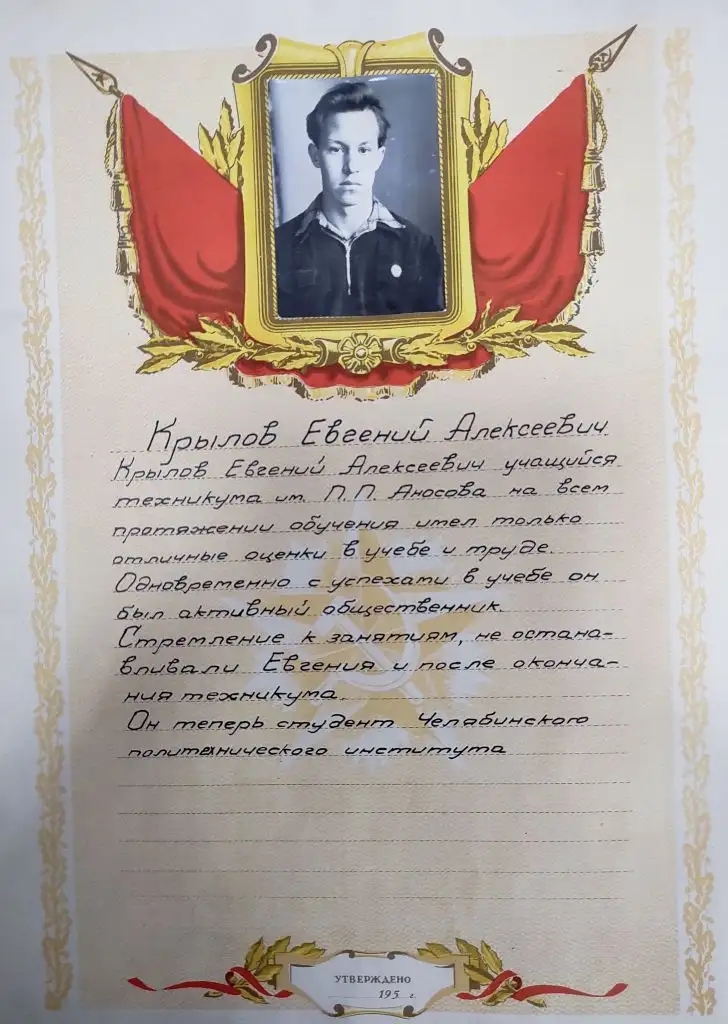 Крылов Евгений Алексеевич
Крылов Евгений Алексеевич учащийся
техникума им. П.П. Аносова на всем
протяжении обучения имел только
отличные оценки в учебе и труде.
Одновременно с успехами в учебе он
был активный общественник.
Стремление к занятиям, не остана-
вливали Евгения и после оконча-
ния техникума.
Он теперь студент Челябинского
политехнического института
УТВЕРЖДЕНО
195 г.